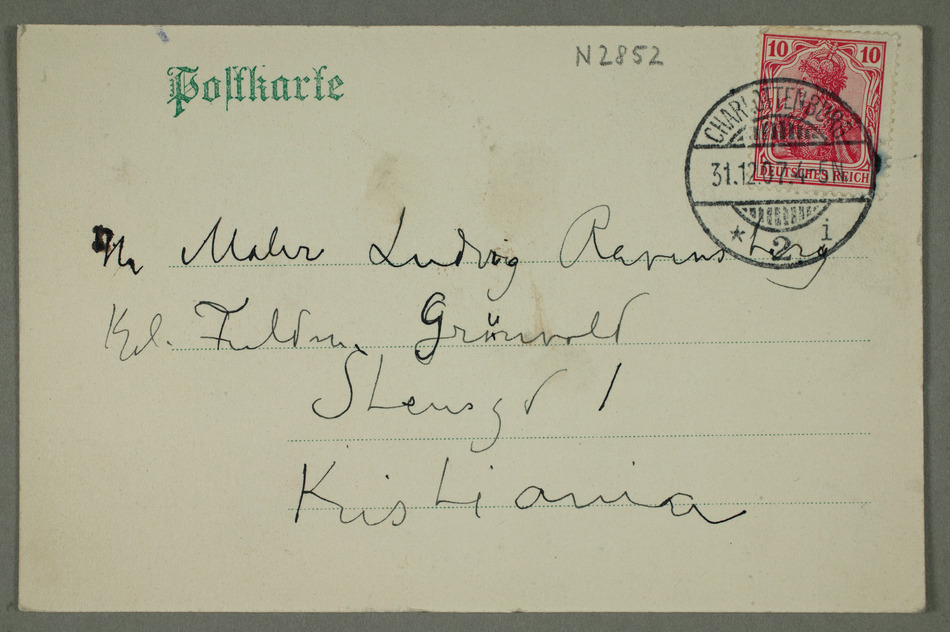 N2852
Postkarte
10 10
DEUTSCHES REICH
CHARLOTTENBURG
31.12.07. 4-5N
* 2 i
Hr Maler Ludvig Ravensberg
Grönvold
Stensgd 1
Kristiania